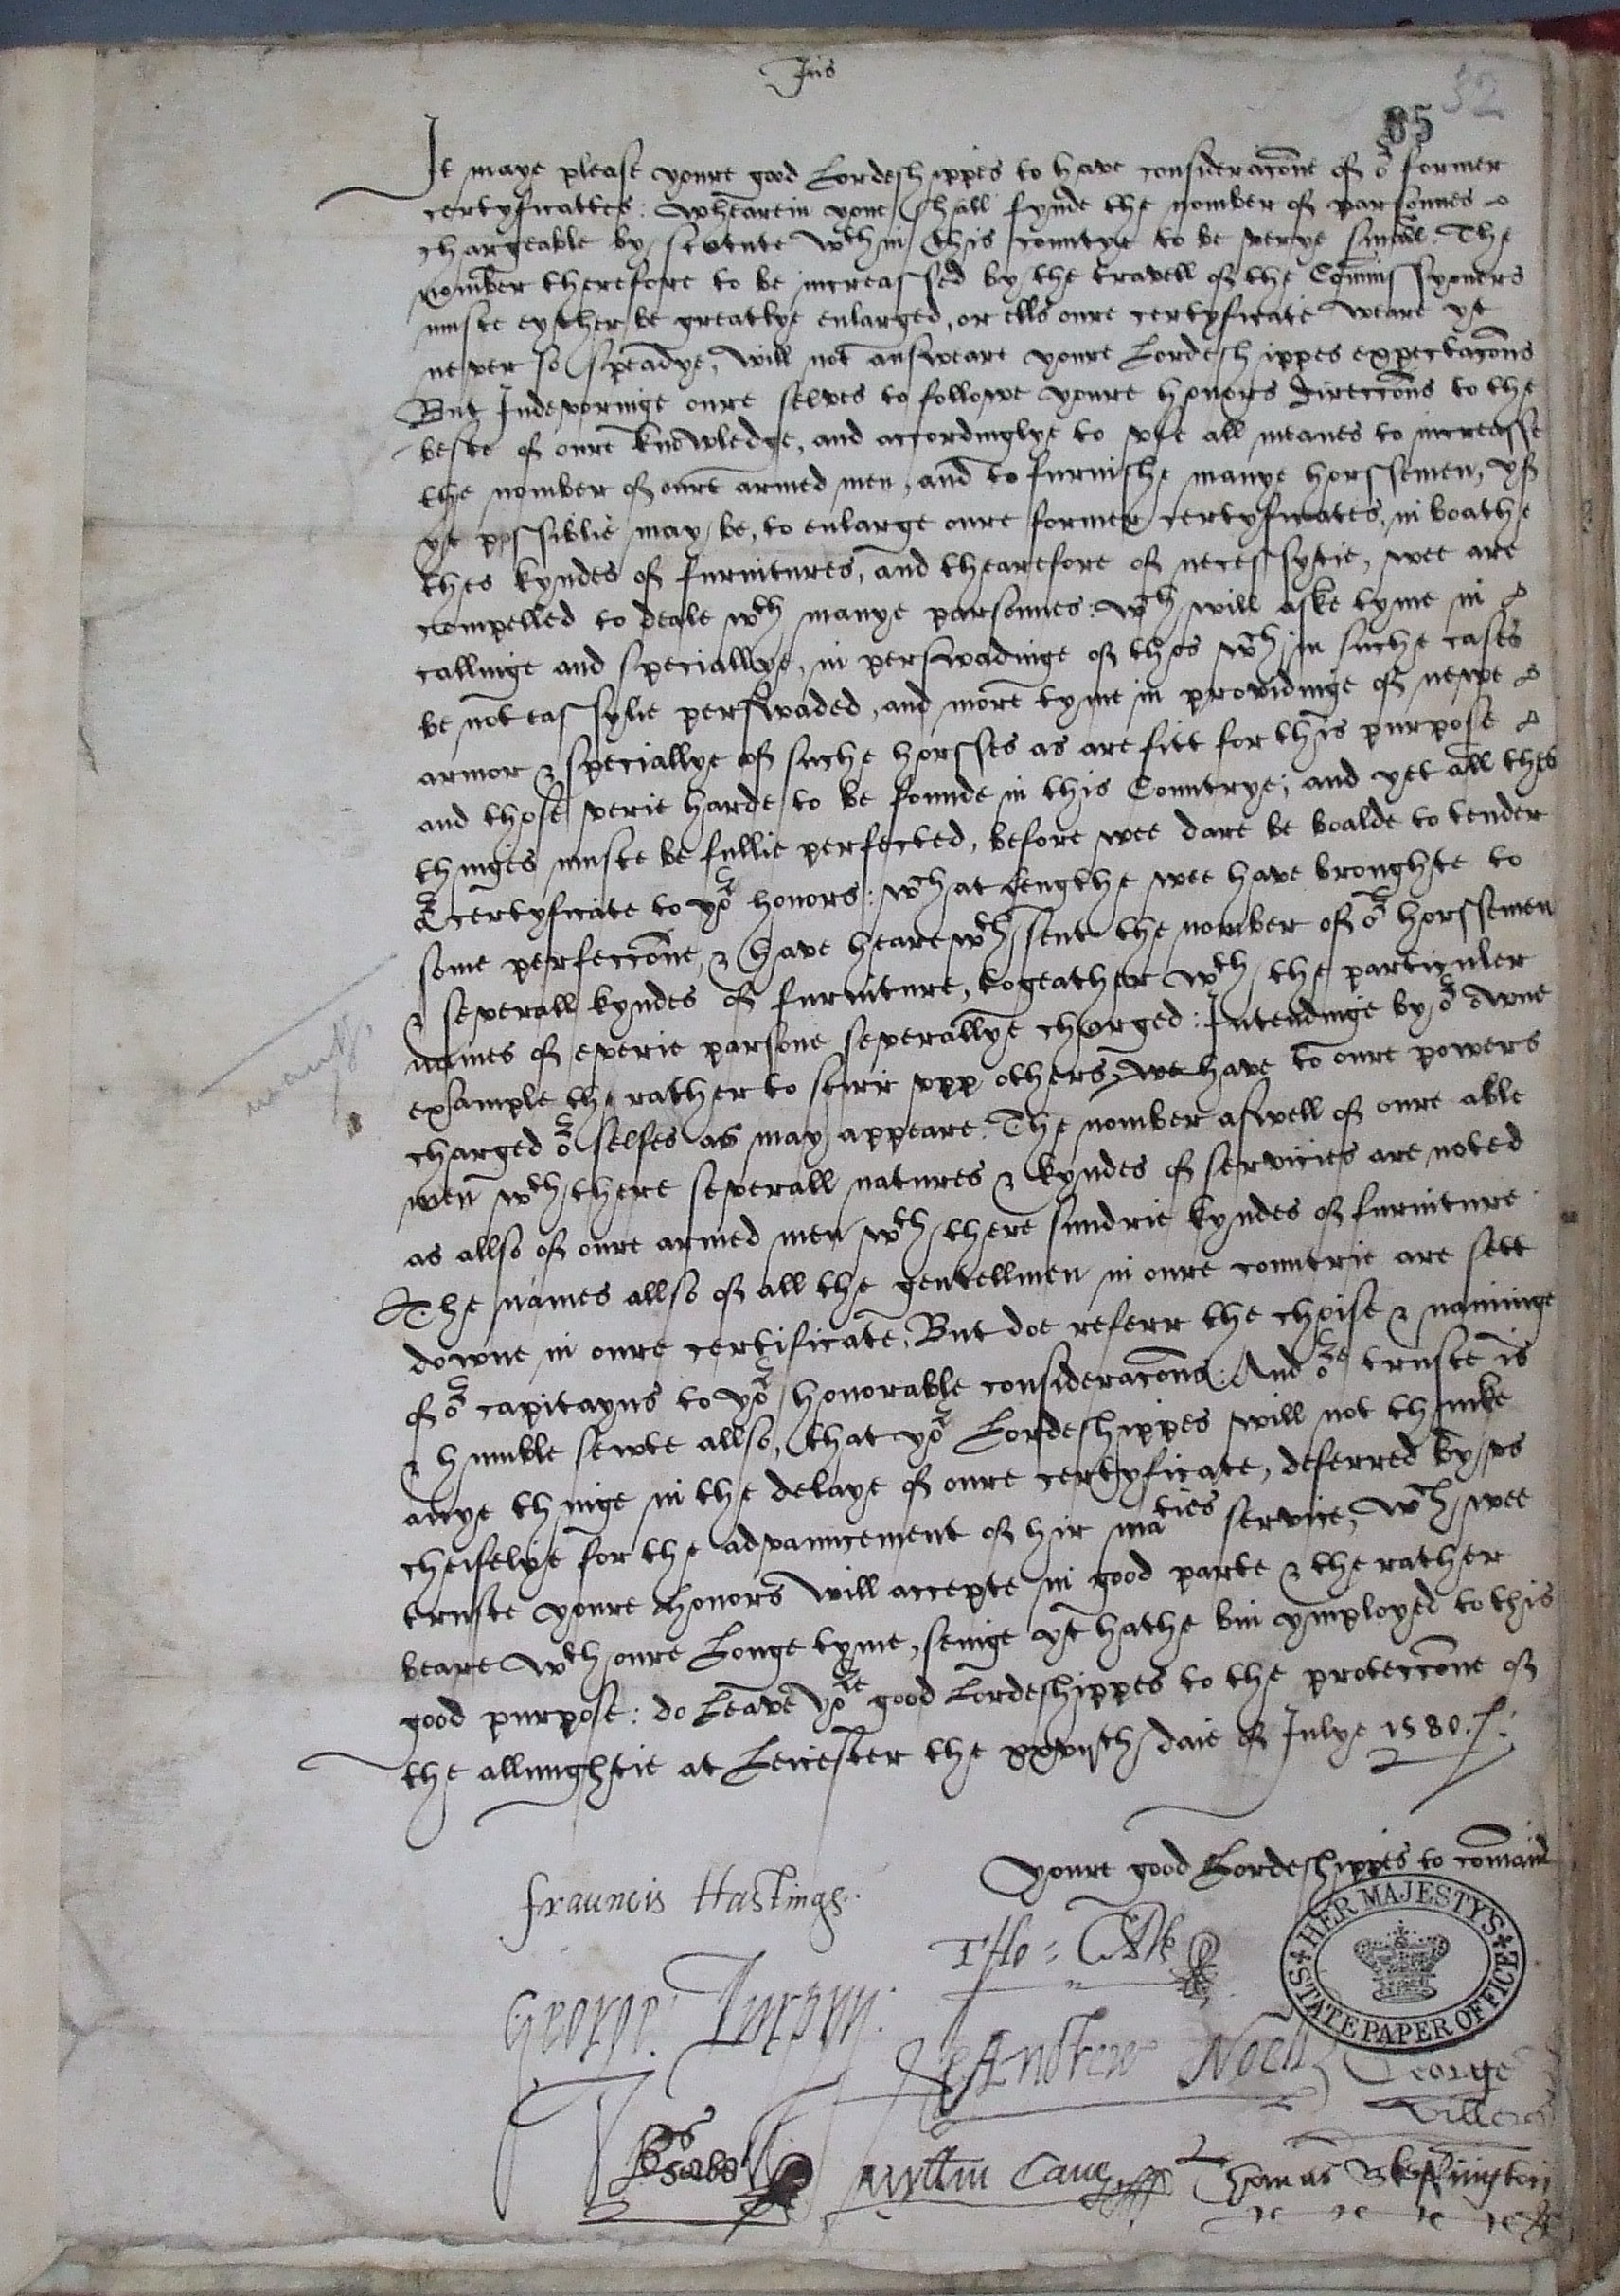 Jns
52
85
It maye please youre good Lordeshippes to have consideracone of or former
certyficattes: Whearein youe shall fynde the nomber of parsonnes
chargeable by statute wthin this countye to be verye small. The
nomber therefore to be increassed by the travell of the Comissyoners
muste eyther be greatlye enlarged, or ells oure certyficate weare yt
never so speadye, will not answeare youre Lordeshippes expectacons
But Indevoringe oure selves to followe youre honors direccons to the
beste of oure knowledge, and accordinglye to vse all meanes to increasse
the nomber of oure armed men, and to furnishe manye horssemen, yf
yt possiblie may be, to enlarge oure former certyficates, in boathe
thes kyndes of furnitures, and thearefore of necessytie, wee are
compelled to deale wth manye parsonnes: wch will aske tyme in
callinge and speciallye, in perswadinge of thos wch in suche cases
be not eassylie perswaded, and more tyme in providinge of newe
armor & speciallye of suche horsses as are fitt for this purpose
and those verie harde to be founde in this Countrye; and yet all thes
thinges muste be fullie perfected, before wee dare be boalde to tender
or certyficate to yor honors: wch at lengthe wee have broughte to
some perfeccone, & have hearewth sent the nomber of or horssemen
& severall kyndes of furniture, togeather wth the particuler
names of everie parsone severallye charged: Intendinge by or owne
example the rather to stirr vpp others, we have to oure powers
charged or selfes as may appeare. The nomber aswell of oure able
men wth there severall natures & kyndes of servicies are noted
as allso of oure armed men wth there sundrie kyndes of furniture
The names allso of all the gentellmen in oure countrie are sett
downe in oure certificate, But doe referr the choise & naminge
of or capitayns to yor honorable consideracons: And or truste is
& humble sewte allso, that yor Lordeshippes will not thinke
anye thinge in the delaye of oure certyficate, deferred by vs
cheifelye for the advauncement of hir maties service, wch wee
truste youre honors will accepte in good parte & the rather
beare wth oure Longe tyme, seinge yt hathe bin ymployed to this
good purpose: do Leave yore good Lordeshippes to the proteccone of
the allmightie at Leicester the xxvjth daie of Julye 1580.
Youre good Lordeshippes to comaund
Frauncis Hastings.
Tho: Cave
George Turpyn.
Andrew Noell
George
Villers
Wyllm Cave
Thomas Skeffington
HER MAJESTY'S STATE PAPER OFFICE